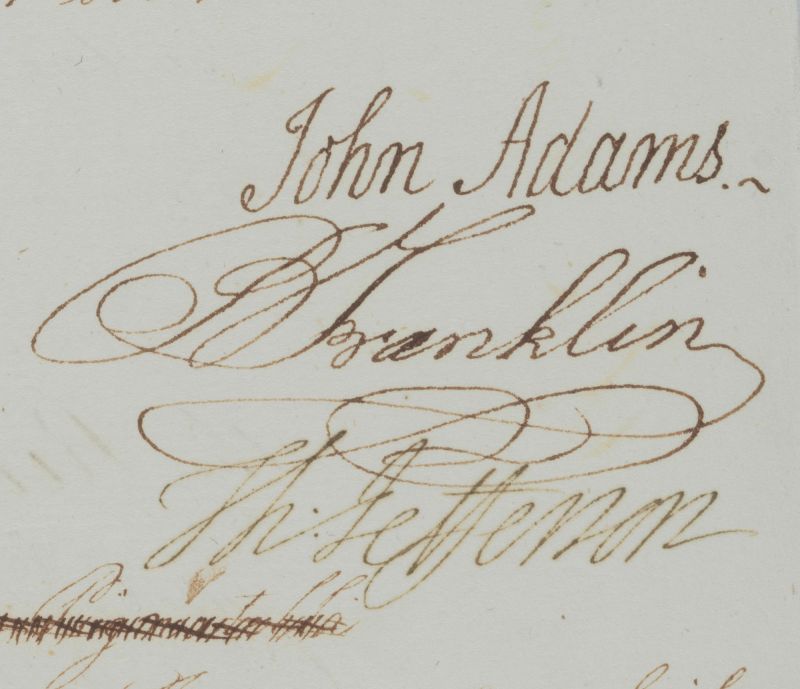 John Adams.~
B Franklin
Th: Jefferson